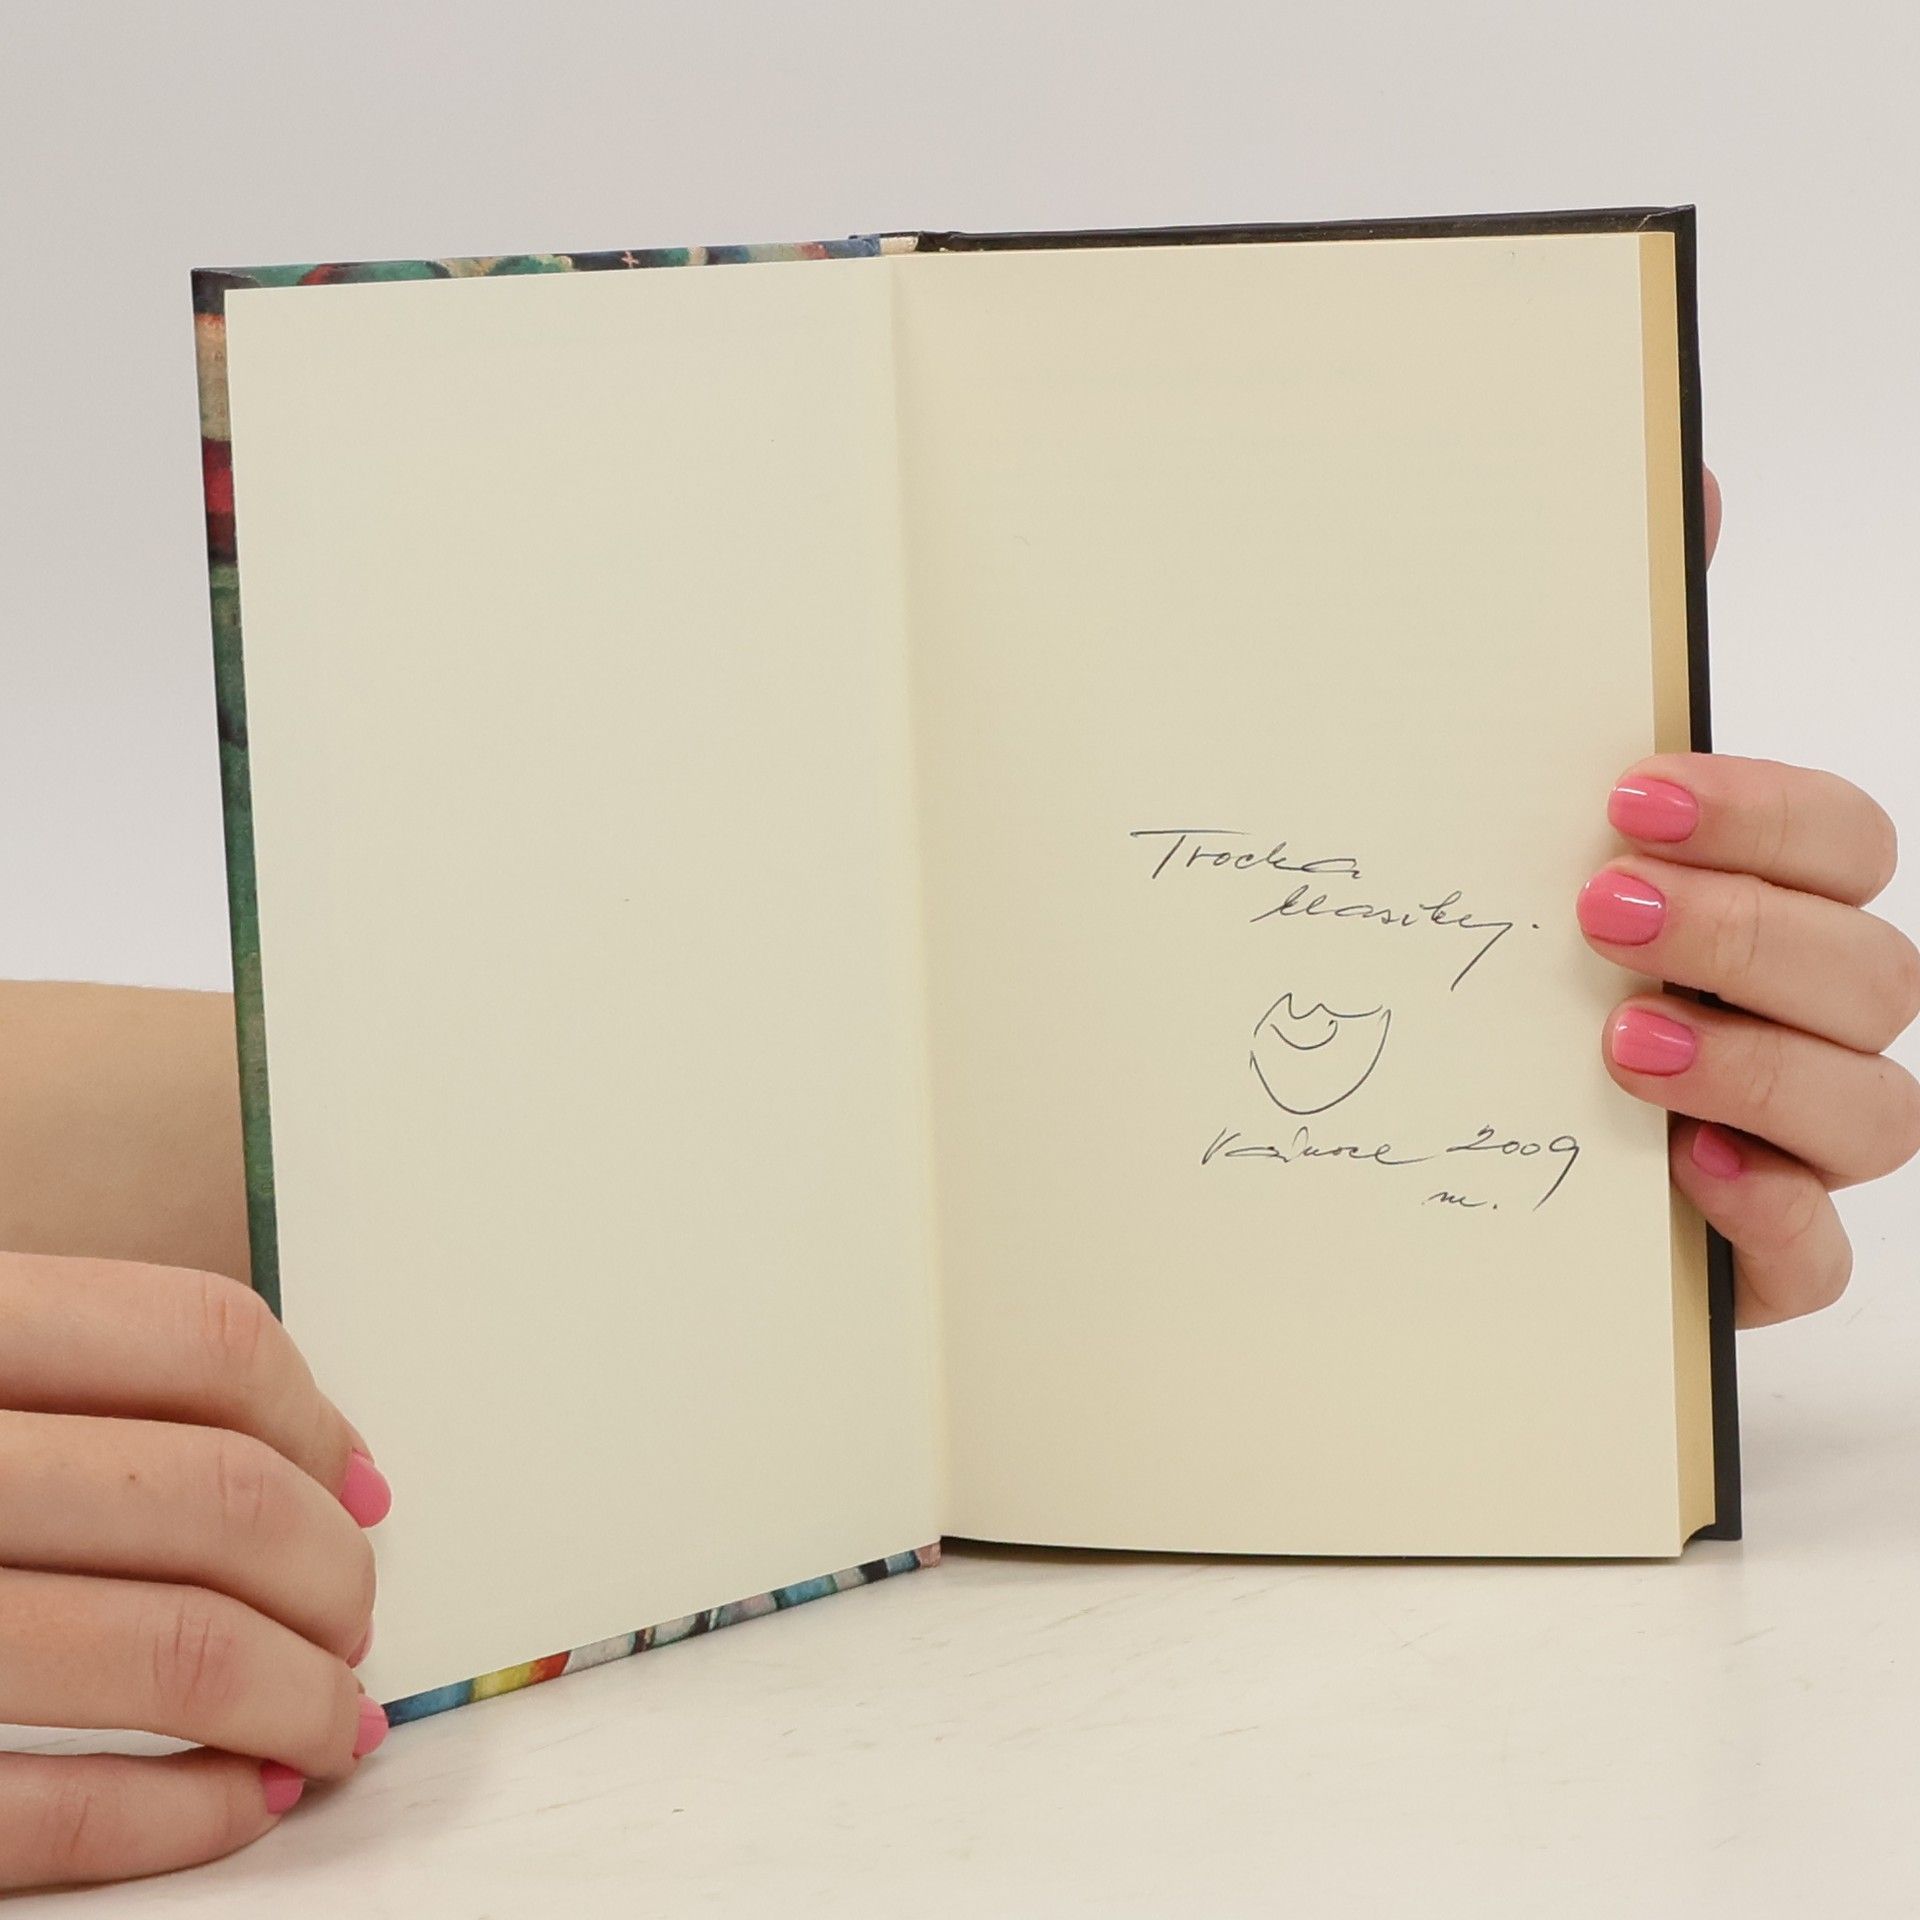 Trocha
klasiky.
Vánoce 2009
m.